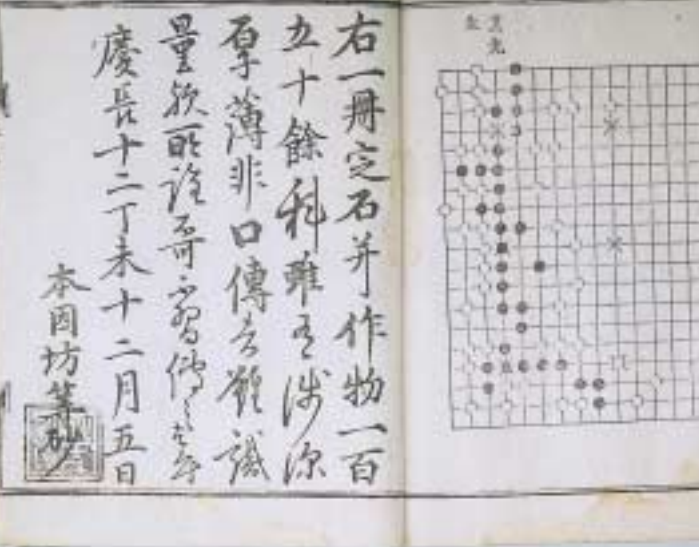 黒先
生
右一冊定石并作物一百
五十餘科雖有浅深
厚薄非口傳者難識
量歟所詮可習傳
慶長十二丁未十二月五日
本因坊算砂